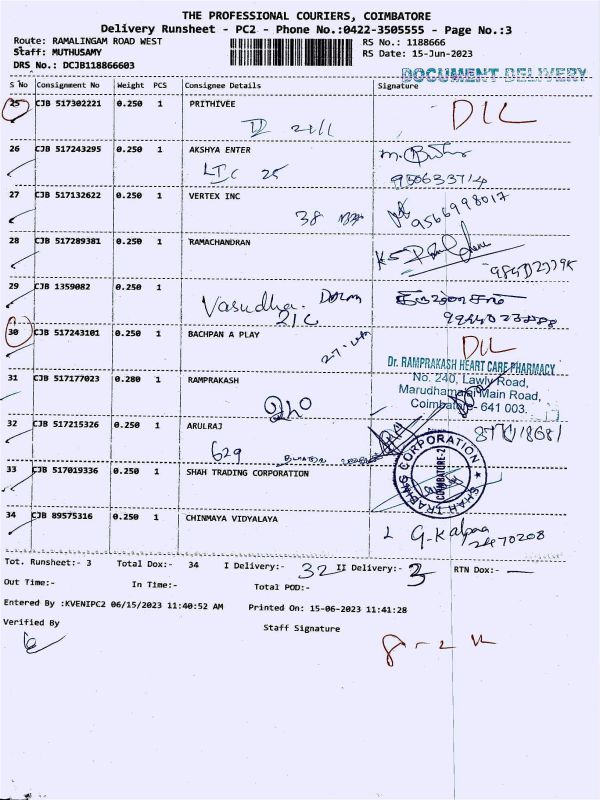 THE PROFESSIONAL COURIERS, COIMBATORE
Delivery Runsheet - PC2 - Phone No.:0422-3505555 - Page No.:3
Route: RAMALINGAM ROAD WEST
RS No.: 1188666
Staff: MUTHUSAMY
RS Date: 15-Jun-2023
DRS No.: DCJB118866603
DOCUMENT DELIVERY
S No Consignment No Weight PCS Consignee Details Signature
25 CJB 517302221 0.250 1 PRITHIVEE
DIL
26 CJB 517243295 0.250 1 AKSHYA ENTER
LTC 25
950633714
27 CJB 517132622 0.250 1 VERTEX INC
38
9566998017
28 CJB 517289381 0.250 1 RAMACHANDRAN
29 CJB 1359082 0.250 1
Vasudha
21C
30 CJB 517243101 0.250 1 BACHPAN A PLAY
DIL
Dr. RAMPRAKASH HEART CARE PHARMACY
No. 240, Lawly Road,
Marudhamalai Main Road,
Coimbatore- 641 003.
31 CJB 517177023 0.280 1 RAMPRAKASH
240
32 CJB 517215326 0.250 1 ARULRAJ
629
33 CJB 517019336 0.250 1 SHAH TRADING CORPORATION
SHAH TRADING CORPORATION
COIMBATORE-2
34 CJB 89575316 0.250 1 CHINMAYA VIDYALAYA
G-Kalpaa
2470208
Tot. Runsheet:- 3 Total Dox:- 34 I Delivery:- 32 II Delivery:- 3 RTN Dox:- —
Out Time:- In Time:- Total POD:-
Entered By :KVENIPC2 06/15/2023 11:40:52 AM Printed On: 15-06-2023 11:41:28
Verified By
Staff Signature